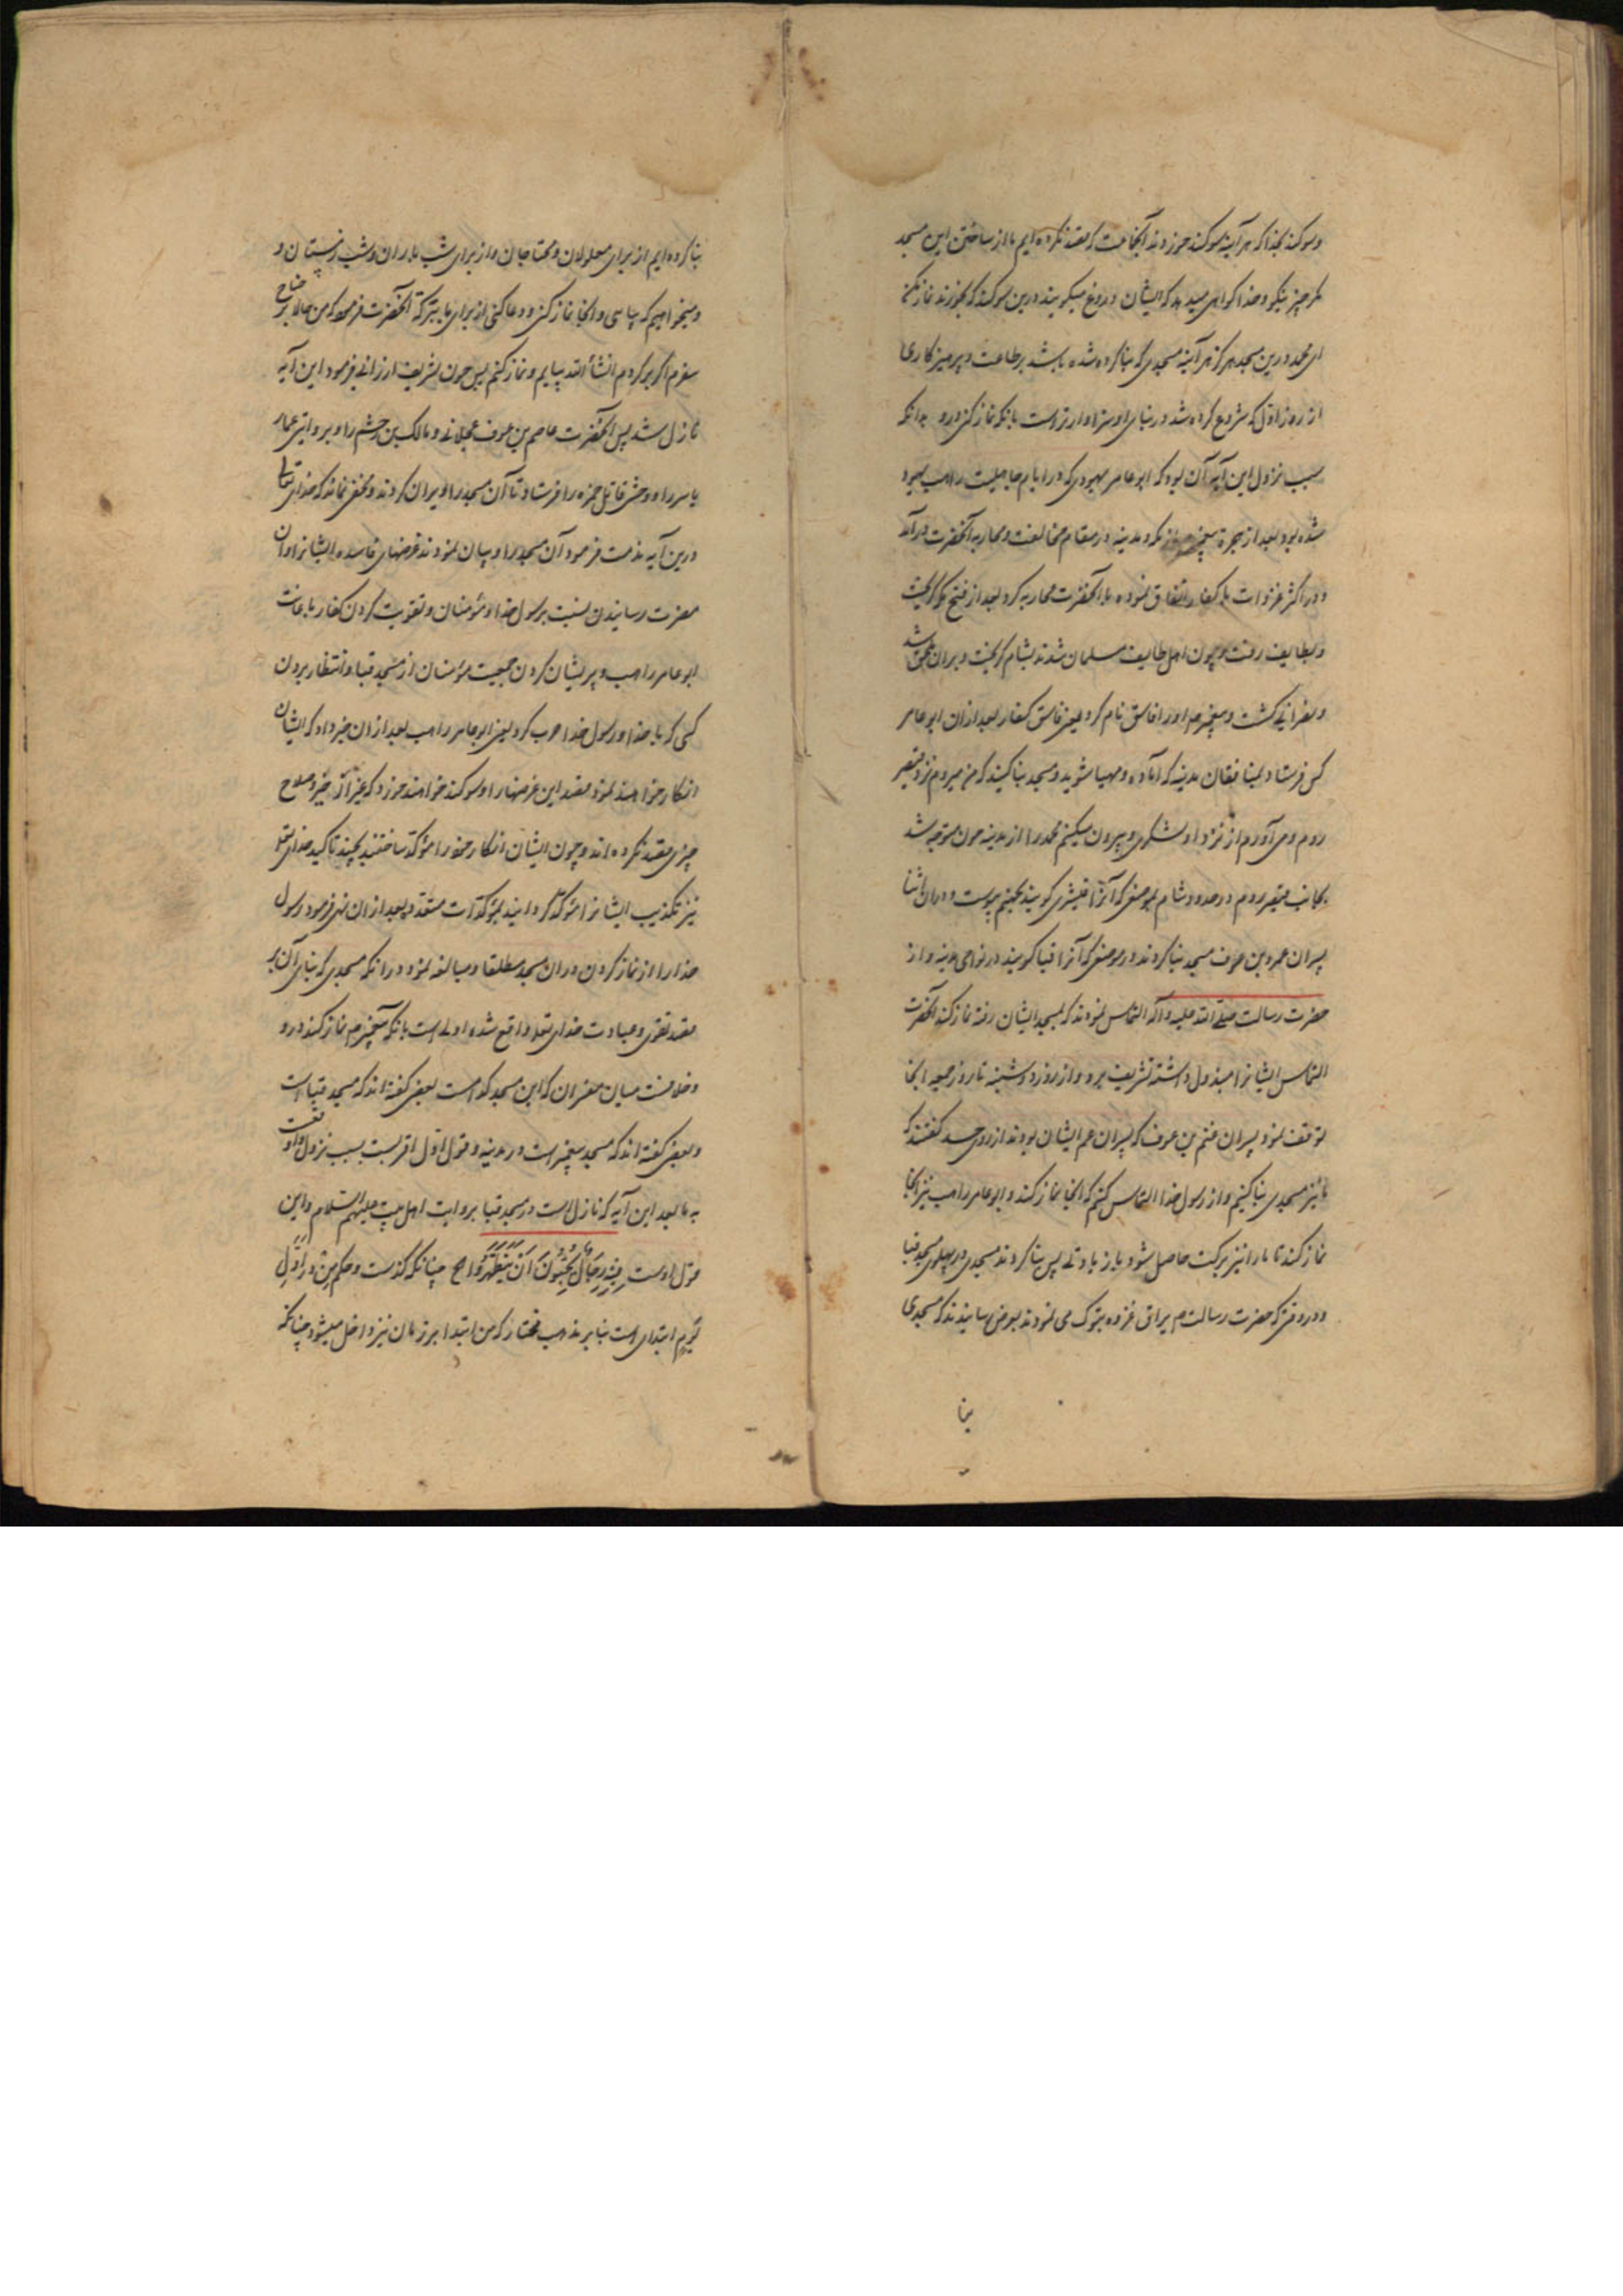 وسوکند بخدا که هر آینه سوکند خورزدند آنجماعت که قصد نکرده ایم ما از ساختن این مسجد
مکر چیز نیکو و خدا کواهی میدهد که ایشان دروغ میکویند درین سوکند که میخورند نماز مکن
ای محمد درین مسجد هرکز هر آینه مسجدی که بنا کرده شده باشد بر طاعت و پرهیزکاری
از روز اول که شروع کرده شد در بنای او سزاوارترست بانکه نماز کنی درو بدانکه
سبب نزول این آیه آن بود که ابو عامر یهودی که در ایام جاهلیت راهب یهود
شده بود بعد از هجرة پیغمبر از مکه بمدینه در مقام مخالفت و محاربه آنحضرت درآمد
و در اکثر غزوات با کفار اتفاق نموده با آنحضرت محاربه کرد بعد از فتح مکه کریخت
و بطایف رفت و چون اهل طایف مسلمان شدند بشام کریخت و بران ملحق شد
و نصرانی کشت و پیغمبر م اورا فاسق نام کرد یعنی فاسق کفار بعد ازان ابو عامر
کس فرستاد بمنافقان مدینه که آماده و مهیا شوید و مسجد بنا کنید که من میروم نزد قیصر
روم و می آورم از نزد او لشکری و بیرون میکنم محمد را از مدینه چون متوجه شد
بجانب قیصر روم در حدود شام بموضعی که آنرا قنیشری کویند بجهنم پیوست و دران اثنا
پسران عمرو بن عوف مسجد بنا کردند در موضعی که آنرا قبا کویند در نواحی مدینه و از
حضرت رسالت صلی الله علیه و آله التماس نمودند که بمسجد ایشان رفته نماز کند آنحضرت
التماس ایشانرا مبذول داشته تشریف برد و از روز دوشنبه تا روز جمعه آنجا
توقف نمود پسران غنم بن عوف که پسران عم ایشان بودند از روی حسد کفتند که
ما نیز مسجدی بنا کنیم و از رسول خدا التماس کنیم که آنجا نماز کند و ابو عامر راهب نیز آنجا
نماز کند تا مارا نیز برکت حاصل شود باز یادتی پس بنا کردند مسجدی در پهلوی مسجد قبا
و در وقتی که حضرت رسالت م یراق غزوه تبوک می نمودند بعرض رسانیدند که مسجدی
بنا
بنا کرده ایم از برای معلولان و محتاجان و از برای شب باران و شب زمستان و
و میخواهیم که بیایی و آنجا نماز کنی و دعا کنی از برای ما ببرکة آنحضرت فرمود که من حالا بر جناح
سفرم اکر برکردم انشأ الله بیایم و نماز کنم پس چون تشریف ارزانی فرمود این آیه
نازل شد پس آنحضرت عاصم بن عوف عجلانی و مالک بن دخشم را و بروایتی عمار
یاسر را و وحشی قاتل حمزه را فرستاد تا آن مسجد را ویران کردند و مخفی نماند که خدای تعالی
درین آیه مذمت فرمود آن مسجد را و بیان نمودند غرضهای فاسده ایشانرا و آن
مضرت رسانیدن بنسبت برسول خدا و مؤمنان و تقویت کردن کفار باعانت
ابو عامر راهب و پریشان کردن جمعیت مؤمنان از مسجد قبا و انتظار بردن
کسی که با خدا و رسول خدا حرب کرد یعنی ابو عامر راهب بعد ازان خبر داد که ایشان
انکار خواهند نمود قصد این غرضها را و سوکند خواهند خورد که غیر از خیر و صلاح
چیزی قصد نکرده اند و چون ایشان انکار خود را مؤکد ساختند بچند تاکید خدای تعالی
نیز تکذیب ایشانرا مؤکد کردانید بمؤکدات متعدد بعد ازان نهی فرمود رسول
خدا را از نماز کردن دران مسجد مطلقا و مبالغه نمود درانکه مسجدی که بنای آن بر
قصد تقوی و عبادت خدای تعالی واقع شده اولی است بانکه پیغمبر م نماز کند درو
و خلافست میان مفسران که این مسجد کدامست بعضی کفته اند که مسجد قباست
و بعضی کفته اند که مسجد پیغمبر است در مدینه و قول اول اقربست بسبب نزول و اوفقست
به ما بعد این آیه که نازل است در مسجد قبا بروایت اهل بیت علیهم السلام و این
قول اوست فِیهِ رِجَالٌ یُحِبُّونَ اَنْ یَتَطَهَّرُوا الخ چنانکه کذشت و حکم مِن در اَوَّلِ
یَومٍ ابتدای است بنا بر مذهب مختار که من ابتدا بر زمان نیز داخل میشود چنانکه